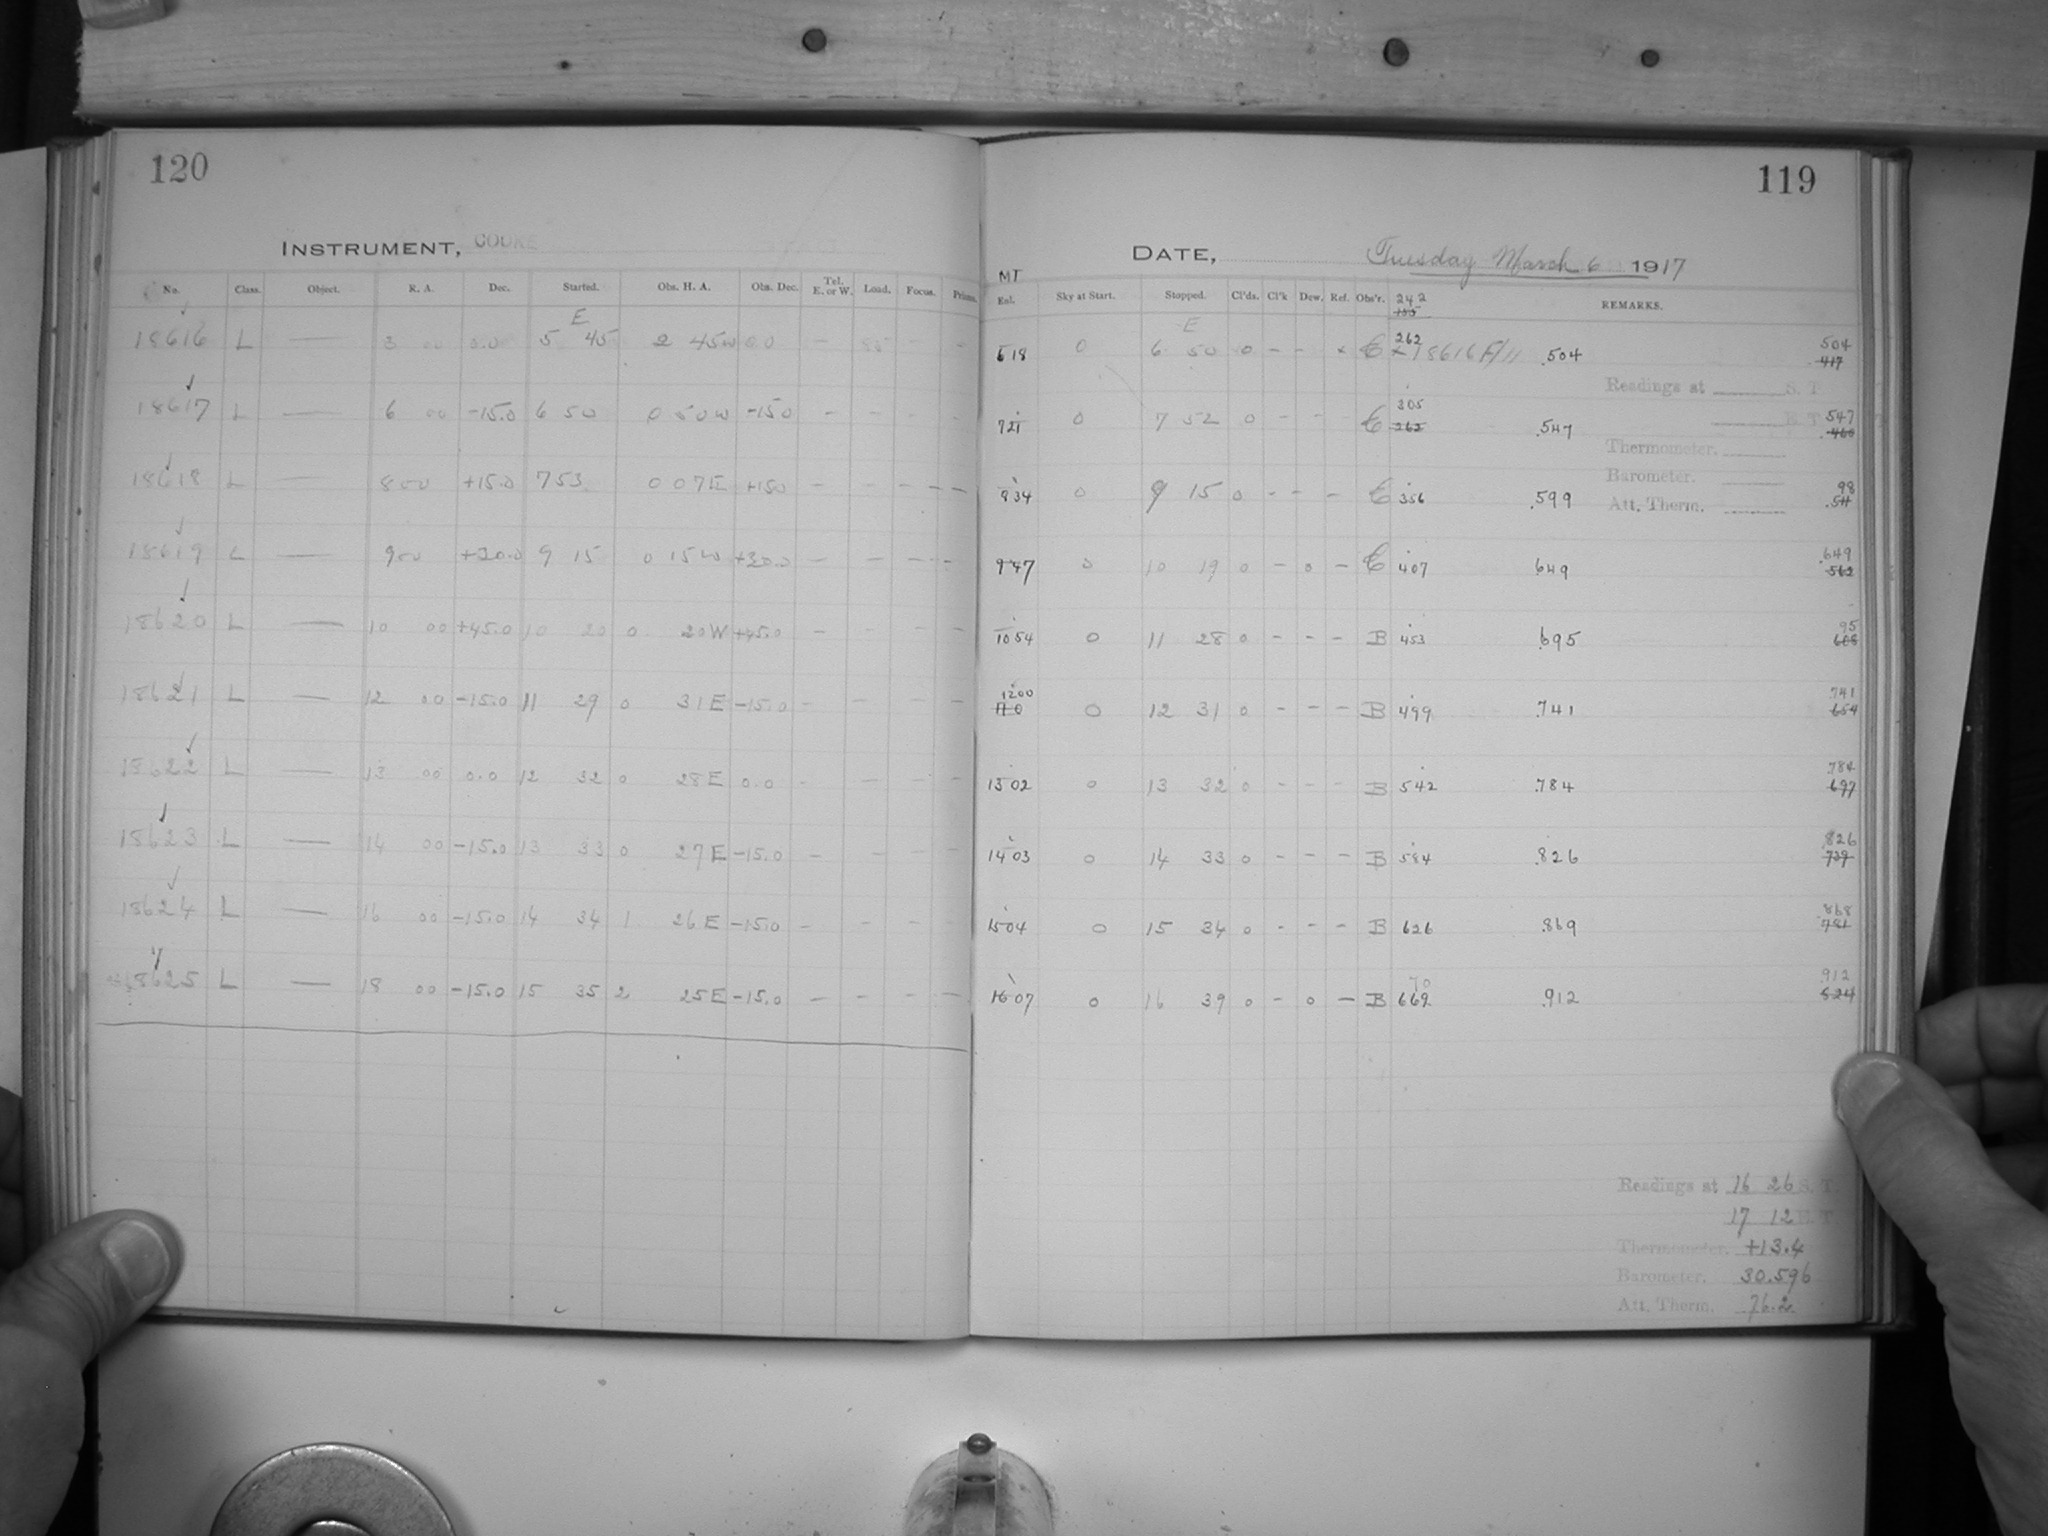 120
INSTRUMENT, COOKE
No. Class. Object. R. A. Dec. Started. Obs. H. A. Obs. Dec. Tel. E. or W. Load. Focus. Prism.
E
18616 L — 3 00 0.0 5 45 2 45 W 0.0 — — —
18617 L — 6 00 -15.0 6 50 0 50 W -15.0 — — — —
18618 L — 8 00 +15.0 7 53 0 07 E +15.0 — — — —
18619 L — 9 00 +30.0 9 15 0 15 W +30.0 — — — —
18620 L — 10 00 +45.0 10 20 0 20 W +45.0 — — — —
18621 L — 12 00 -15.0 11 29 0 31 E -15.0 — — — —
18622 L — 13 00 0.0 12 32 0 28 E 0.0 — — — —
18623 L — 14 00 -15.0 13 33 0 27 E -15.0 — — — —
18624 L — 16 00 -15.0 14 34 1 26 E -15.0 — — — —
18625 L — 18 00 -15.0 15 35 2 25 E -15.0 — — — —
119
DATE, Tuesday March 6 1917
MT
Exl. Sky at Start. Stopped. Cl'ds. Cl'k Dew. Ref. Obs'r. 242 REMARKS.
E
6 18 0 6 50 0 - - x C 262 x 18616 F/11 .504 504 417
Readings at S. T
7 21 0 7 52 0 - - - C 305 262 .547 547 460
Thermometer.
Barometer.
8 34 0 9 15 0 - - - C 356 .599 98 .511
Att. Therm.
9 47 0 10 19 0 - 0 - C 407 649 .649 562
10 54 0 11 28 0 - - - B 453 .695 95 608
12 00 0 12 31 0 - - - B 499 .741 741 654
13 02 0 13 32 0 - - - B 542 .784 .784 697
14 03 0 14 33 0 - - - B 584 .826 .826 739
15 04 0 15 34 0 - - - B 626 .869 868 781
16 07 0 16 39 0 - 0 - B 669 .912 912 824
Readings at 16 26 S. T.
17 12 E. T.
Thermometer. +13.4
Barometer. 30.596
Att. Therm. 76.2